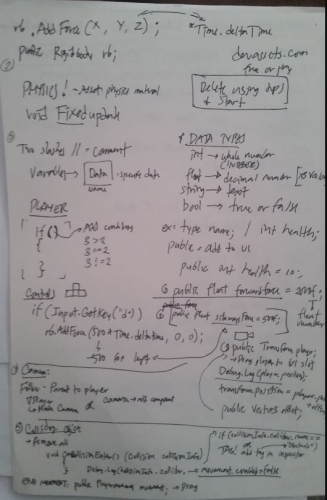 rb.AddForce(X, Y, Z); * Time.deltaTime
public Rigidbody rb;
devassets.com
free or pay
PHYSICS! - Asset physics material
void Fixedupdate
Delete using tips
& Start
Two slashes // = Comment
Variables → Data - specific data
name
* DATA TYPES
int → whole number
(INTEGERS)
float → decimal number
string → text
bool → true or false
PLAYER
if ( ) → Add conditions
{ 3 > 2
3 == 2
} 3 != 2
ex: type name; / int health;
public = add to UI
public int health = 10;
public float forwardforce = 2000f;
public float sidewaysforce = 500f;
Controls
if (Input.GetKey("d"))
rb.AddForce(500 * Time.deltaTime, 0, 0);
-500 for left
public Transform player;
→ Drag player to UI slot
Debug.Log(player.position);
transform.position = player.position
public Vector3 offset;
Camera
Follow - Parent to player
or
Collision
→ Remove all
void OnCollisionEnter (Collision collisionInfo)
Debug.Log(collisionInfo.collider, → movement.enabled=false
if (collisionInfo.collider.name ==
or
TAGS! add tag in inspector
public PlayerMovement movement; → Drag